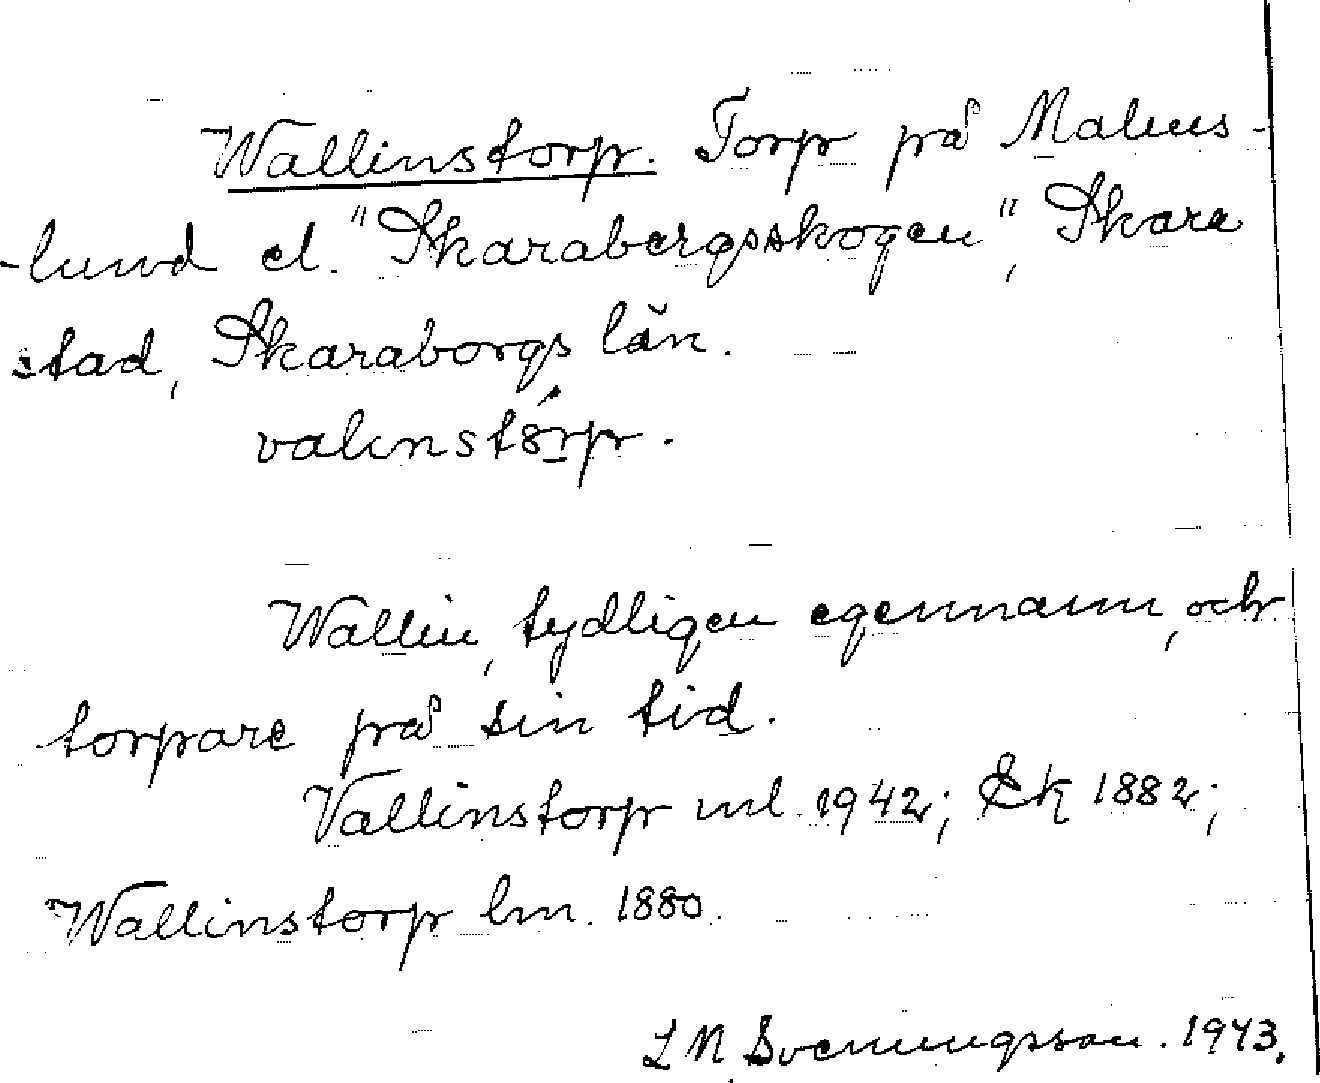 Wallinstorp. Torp på Malms-
-lund el. "Skarabergsskogen", Skara
stad, Skaraborgs län.
valinstórp.
Wallin, tydligen egennamn, och
torpare på sin tid.
Vallinstorp ml. 1942; Ek 1882;
Wallinstorp lm. 1880.
L M Svenungsson. 1943.